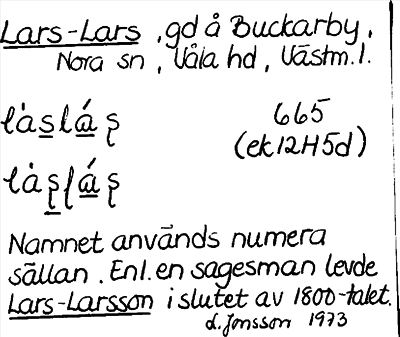 Lars-Lars, gd å Buckarby,
Nora sn, Våla hd, Västm.l.
665
(ek12H5d)
Namnet används numera
sällan. Enl. en sagesman levde
Lars-Larsson i slutet av 1800-talet.
d. Jonsson 1973